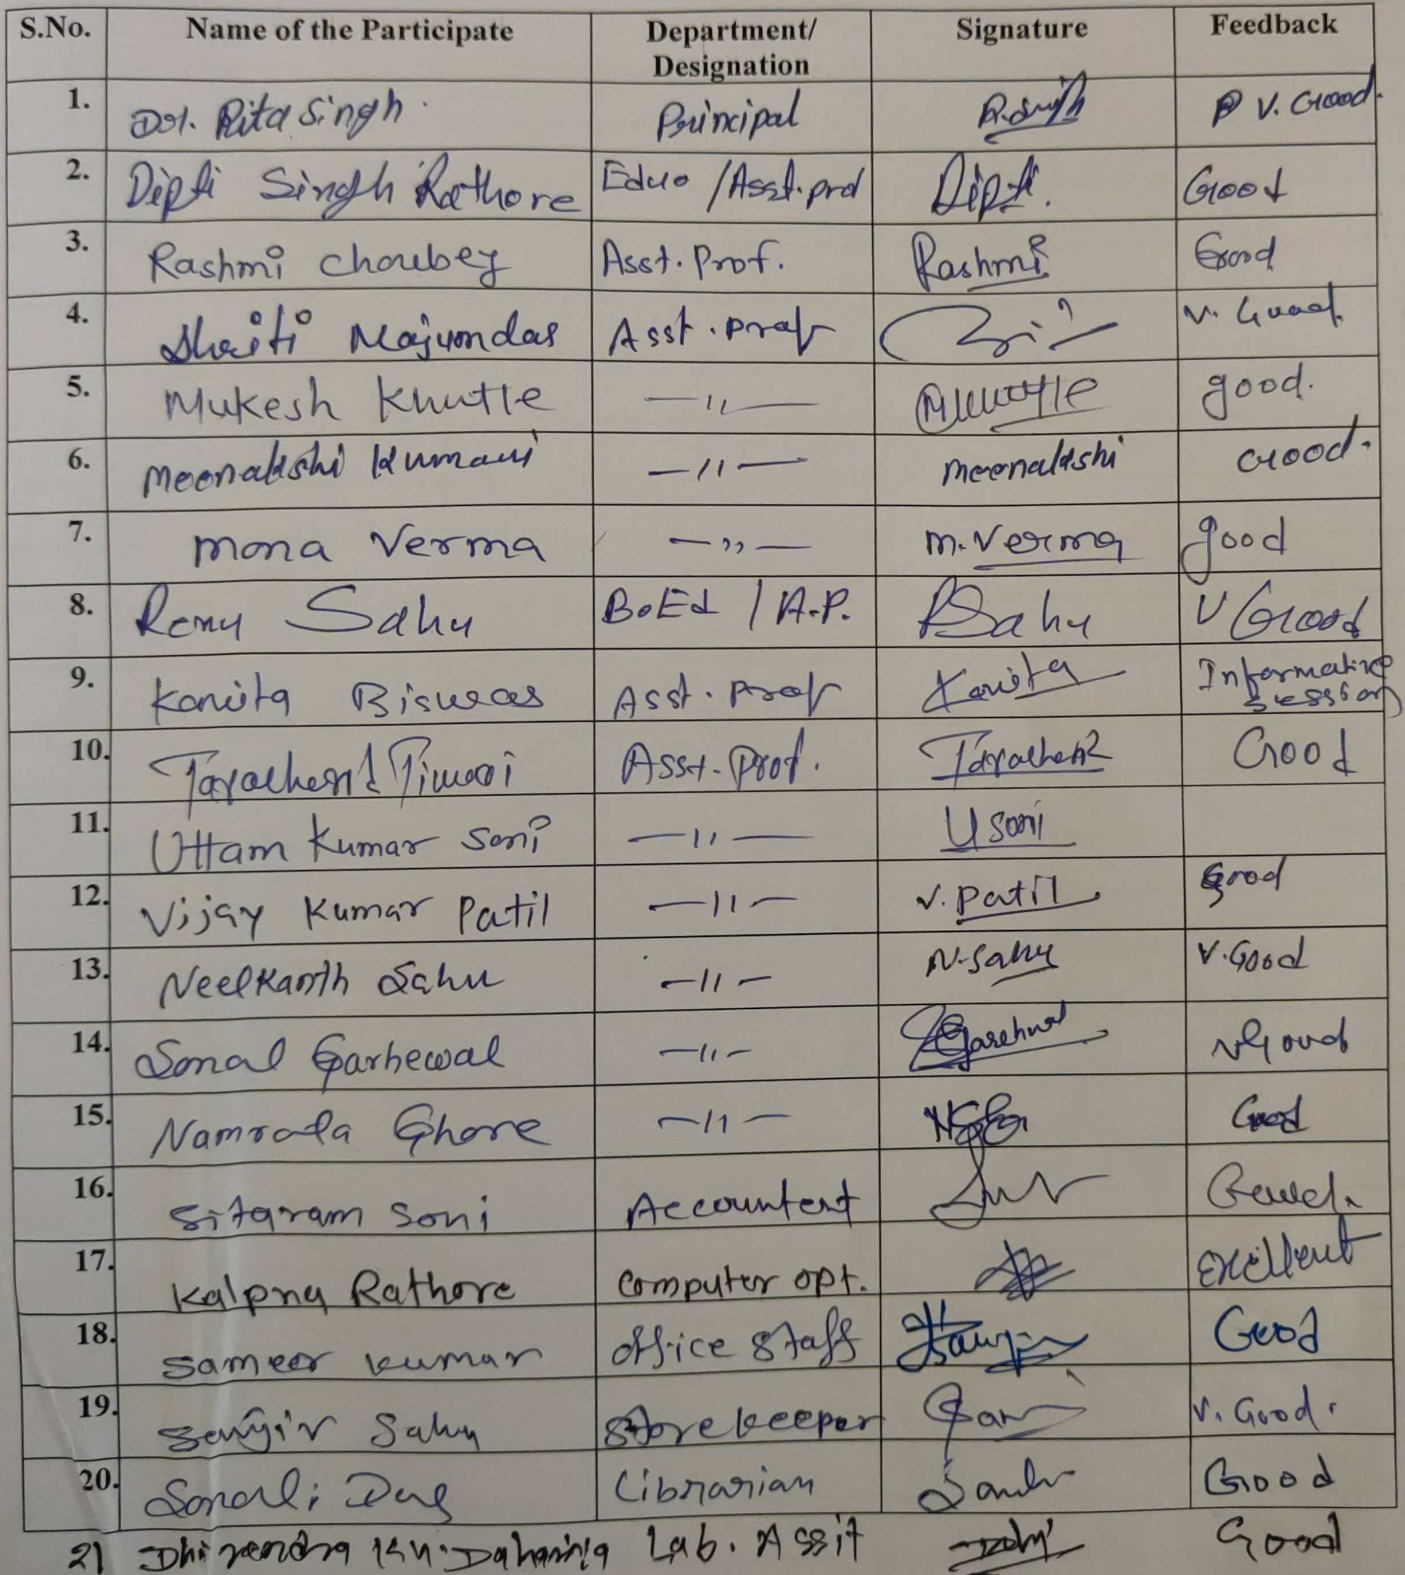 S.No. Name of the Participate Department/ Designation Signature Feedback
1. Dr. Rita Singh. Principal R.Singh V. Good.
2. Dipti Singh Rathore Educ /Asst.prof Dipti. Good
3. Rashmi Choubey Asst. Prof. Rashmi Good
4. Majumdar Asst. prof V. Good.
5. Mukesh Khutle —〃— good.
6. Meenakshi Kumari —〃— Meenakshi Good.
7. Mona Verma —〃— M. Verma good
8. Renu Sahu B.Ed / A.P. RSahu V Good
9. Kavita Biswas Asst. Prof Kavita Informative session
10. Tarachand Tiwari Asst. Prof. Tarachand Good
11. Uttam Kumar Soni —〃— U Soni
12. Vijay Kumar Patil —〃— V. Patil Good
13. Neelkanth Sahu —〃— N. Sahu V. Good
14. Sonal Garhewal —〃— V Good
15. Namrata Ghore —〃— Good
16. Sitaram Soni Accountent
17. Kalpna Rathore Computer opt. Excellent
18. Sameer Kumar Office Staff Good
19. Sanjiv Sahu Store keeper V. Good.
20. Sonali Das Librarian Good
21 Dhirendra Ku. Dahariya Lab. Assit Good